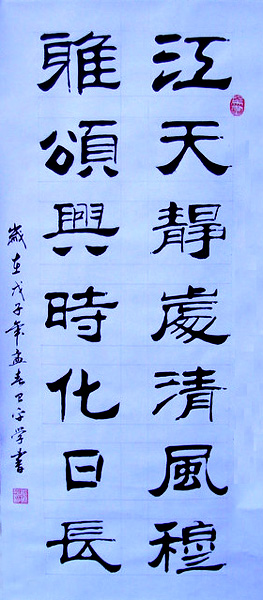 江天靜處清風穆
雅頌興時化日長
歲在戊子年孟春學書